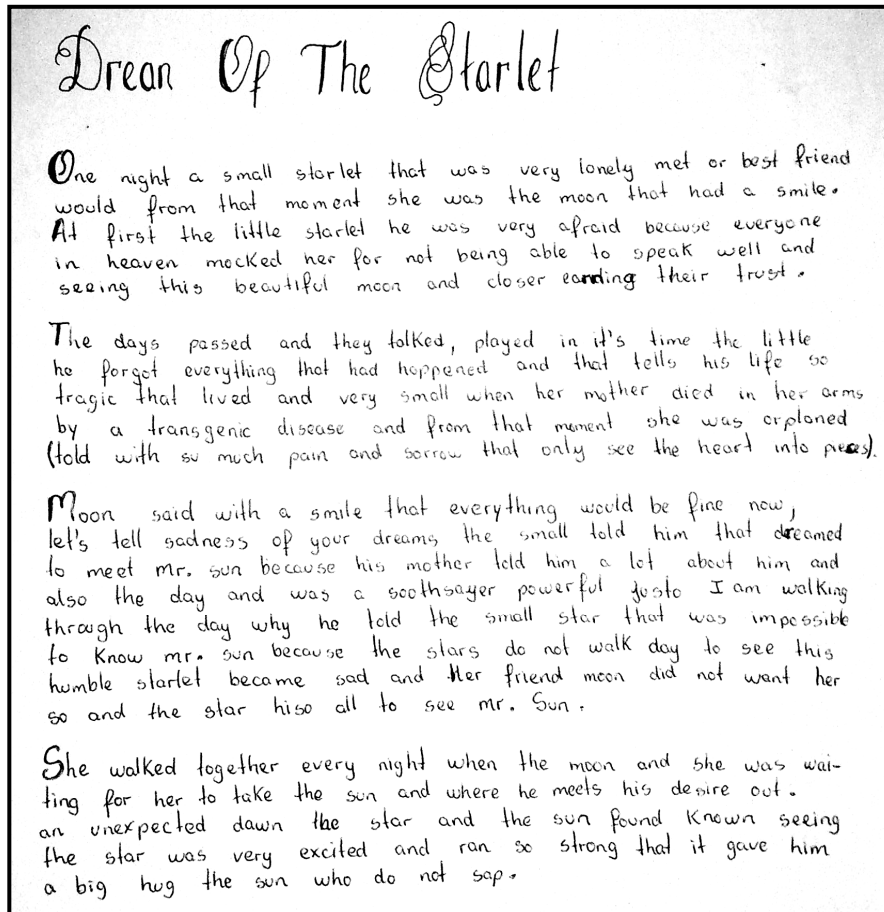 Drean Of The Starlet
One night a small starlet that was very lonely met or best friend
would from that moment she was the moon that had a smile.
At first the little starlet he was very afraid because everyone
in heaven mocked her for not being able to speak well and
seeing this beautiful moon and closer earding their trust.
The days passed and they talked, played in it's time the little
he forgot everything that had happened and that tells his life so
tragic that lived and very small when her mother died in her arms
by a transgenic disease and from that moment she was orploned
(told with su much pain and sorrow that only see the heart into pieces).
Moon said with a smile that everything would be fine now,
let's tell sadness of your dreams the small told him that dreamed
to meet mr. sun because his mother told him a lot about him and
also the day and was a soothsayer powerful justo I am walking
through the day why he told the small star that was impossible
to Know mr. sun because the stars do not walk day to see this
humble starlet became sad and Her friend moon did not want her
so and the star hiso all to see mr. Sun.
She walked together every night when the moon and she was wai-
ting for her to take the sun and where he meets his desire out.
an unexpected dawn the star and the sun found Known seeing
the star was very excited and ran so strong that it gave him
a big hug the sun who do not sap.